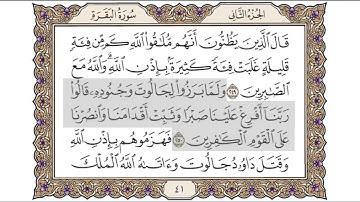 الجزء الثاني سورة البقرة
قَالَ الَّذِينَ يَظُنُّونَ أَنَّهُم مُّلَاقُوا اللَّهِ كَم مِّن فِئَةٍ
قَلِيلَةٍ غَلَبَتْ فِئَةً كَثِيرَةً بِإِذْنِ اللَّهِ وَاللَّهُ مَعَ
الصَّابِرِينَ ٢٤٩ وَلَمَّا بَرَزُوا لِجَالُوتَ وَجُنُودِهِ قَالُوا
رَبَّنَا أَفْرِغْ عَلَيْنَا صَبْرًا وَثَبِّتْ أَقْدَامَنَا وَانصُرْنَا
عَلَى الْقَوْمِ الْكَافِرِينَ ٢٥٠ فَهَزَمُوهُم بِإِذْنِ اللَّهِ
وَقَتَلَ دَاوُودُ جَالُوتَ وَءَاتَاهُ اللَّهُ الْمُلْكَ
٤١